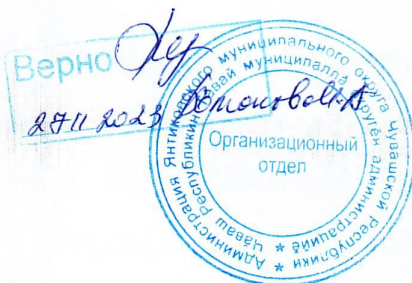 Верно
27 11 2023
Администрация Янтиковского муниципального округа Чувашской Республики *
Чăваш Республикин муниципаллă округӗн администрацийӗ *
Организационный
отдел